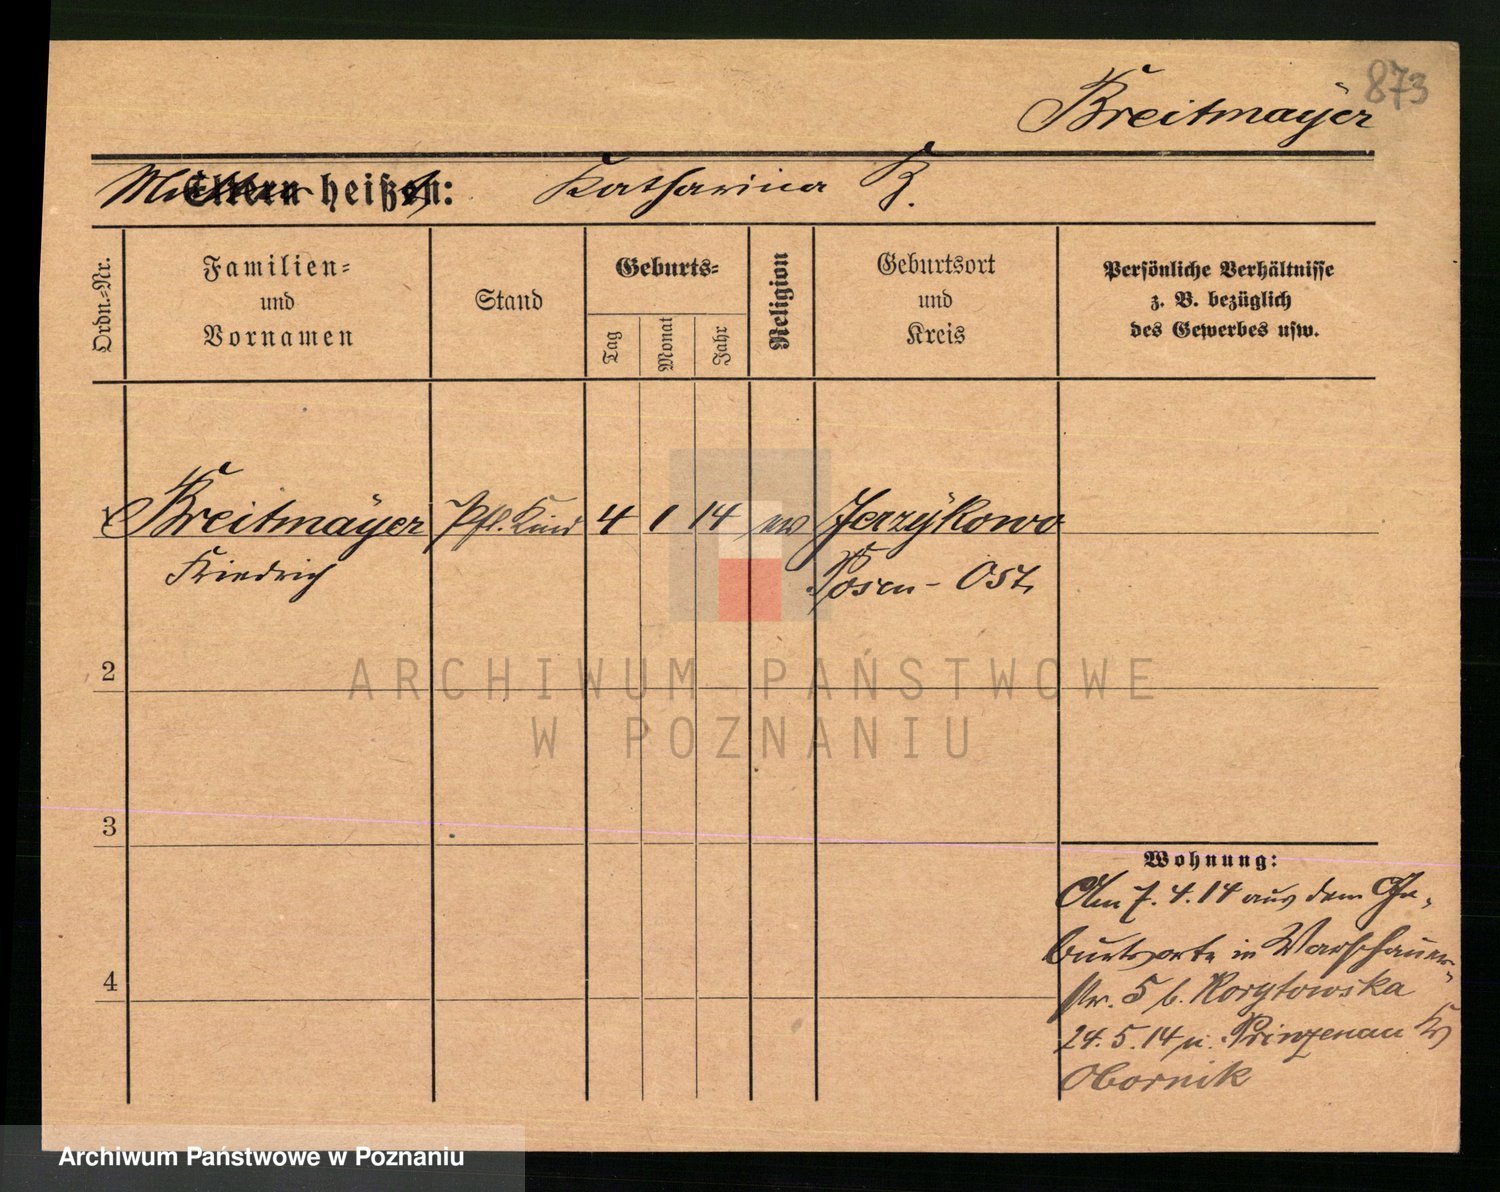 873
Breitmayer
Mutter heißt: Katharina B.
Ordn.-Nr.
Familien-
und
Vornamen
Stand
Geburts-
Tag
Monat
Jahr
Religion
Geburtsort
und
Kreis
Persönliche Verhältnisse
z. B. bezüglich
des Gewerbes usw.
1 Breitmayer Pfl. Kind 4 1 14 ev Jerzykowo
Friedrich Posen - Ost
2
3
4
Wohnung:
Am 7.4.14 aus dem Ge-
burtsorte in Warschauer-
str. 5 b. Korytowska
24.5.14 n. Prinzenau Kr
Obornik
ARCHIWUM PAŃSTWOWE
W POZNANIU
Archiwum Państwowe w Poznaniu